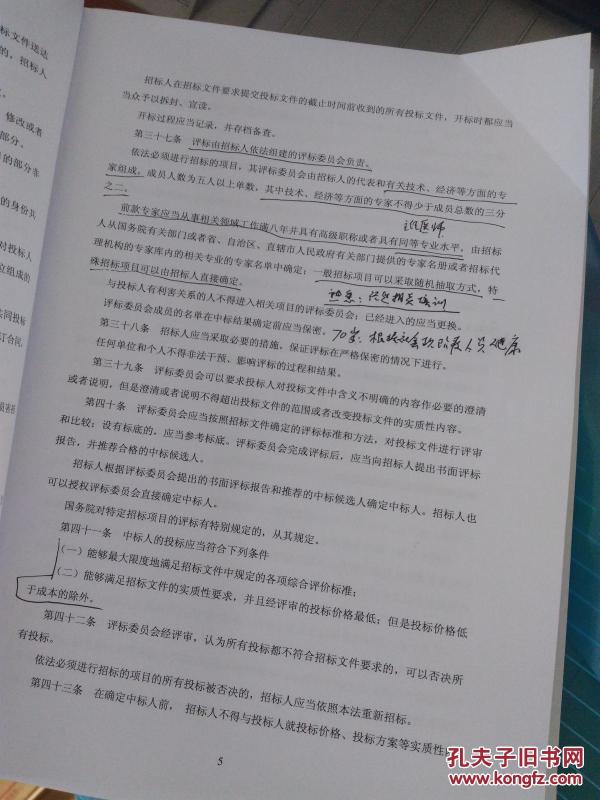 标文件送达
的，招标人
修改或者
部分。
的部分非
的身份共
对投标人
立组成的
共同投标
订合同，
招标人在招标文件要求提交投标文件的截止时间前收到的所有投标文件，开标时都应当
当众予以拆封、宣读。
开标过程应当记录，并存档备查。
第三十七条 评标由招标人依法组建的评标委员会负责。
依法必须进行招标的项目，其评标委员会由招标人的代表和有关技术、经济等方面的专
家组成，成员人数为五人以上单数，其中技术、经济等方面的专家不得少于成员总数的三分
之二。
前款专家应当从事相关领域工作满八年并具有高级职称或者具有同等专业水平，由招标
人从国务院有关部门或者省、自治区、直辖市人民政府有关部门提供的专家名册或者招标代
理机构的专家库内的相关专业的专家名单中确定；一般招标项目可以采取随机抽取方式，特
殊招标项目可以由招标人直接确定。
与投标人有利害关系的人不得进入相关项目的评标委员会；已经进入的应当更换。
评标委员会成员的名单在中标结果确定前应当保密。
70岁
健康
第三十八条 招标人应当采取必要的措施，保证评标在严格保密的情况下进行。
任何单位和个人不得非法干预、影响评标的过程和结果。
第三十九条 评标委员会可以要求投标人对投标文件中含义不明确的内容作必要的澄清
或者说明，但是澄清或者说明不得超出投标文件的范围或者改变投标文件的实质性内容。
第四十条 评标委员会应当按照招标文件确定的评标标准和方法，对投标文件进行评审
和比较；设有标底的，应当参考标底。评标委员会完成评标后，应当向招标人提出书面评标
报告，并推荐合格的中标候选人。
招标人根据评标委员会提出的书面评标报告和推荐的中标候选人确定中标人。招标人也
可以授权评标委员会直接确定中标人。
国务院对特定招标项目的评标有特别规定的，从其规定。
第四十一条 中标人的投标应当符合下列条件
（一）能够最大限度地满足招标文件中规定的各项综合评价标准；
（二）能够满足招标文件的实质性要求，并且经评审的投标价格最低；但是投标价格低
于成本的除外。
第四十二条 评标委员会经评审，认为所有投标都不符合招标文件要求的，可以否决所
有投标。
依法必须进行招标的项目的所有投标被否决的，招标人应当依照本法重新招标。
第四十三条 在确定中标人前，招标人不得与投标人就投标价格、投标方案等实质性
5
孔夫子旧书网
www.kongfz.com